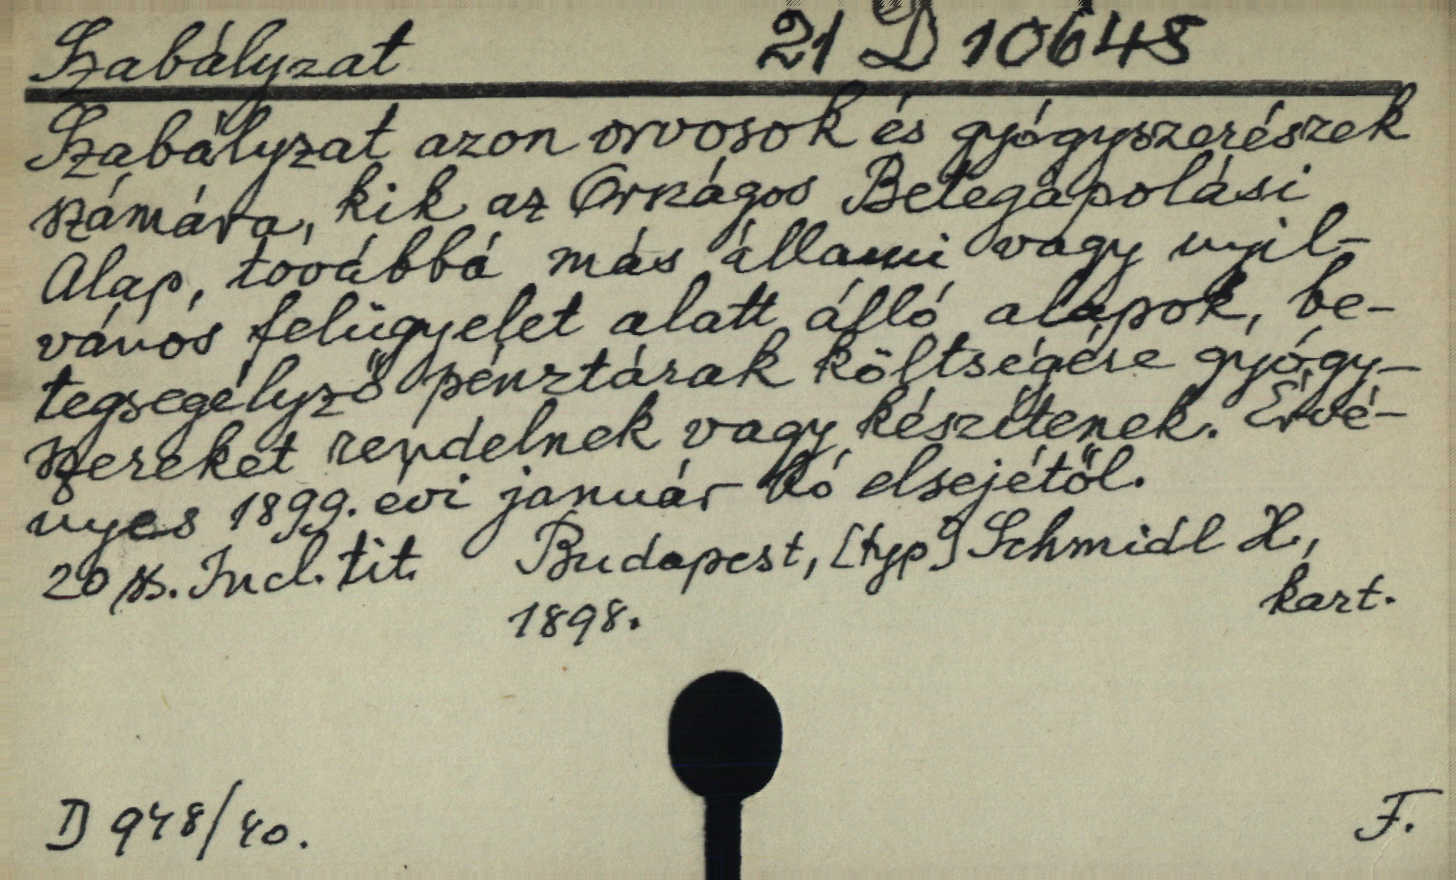 Szabályzat 21 D 10645
Szabályzat azon orvosok és gyógyszerészek
számára, kik az Országos Betegápolási
Alap, továbbá más állami vagy nyil-
vános felügyelet alatt álló alapok, be-
tegsegélyző pénztárak költségére gyógy-
szereket rendelnek vagy készítenek. Érvé-
nyes 1899. évi január hó elsejétől.
20 s. Incl. tit. Budapest, [typ.] Schmidl H.,
1898. kart.
D 948/40. F.